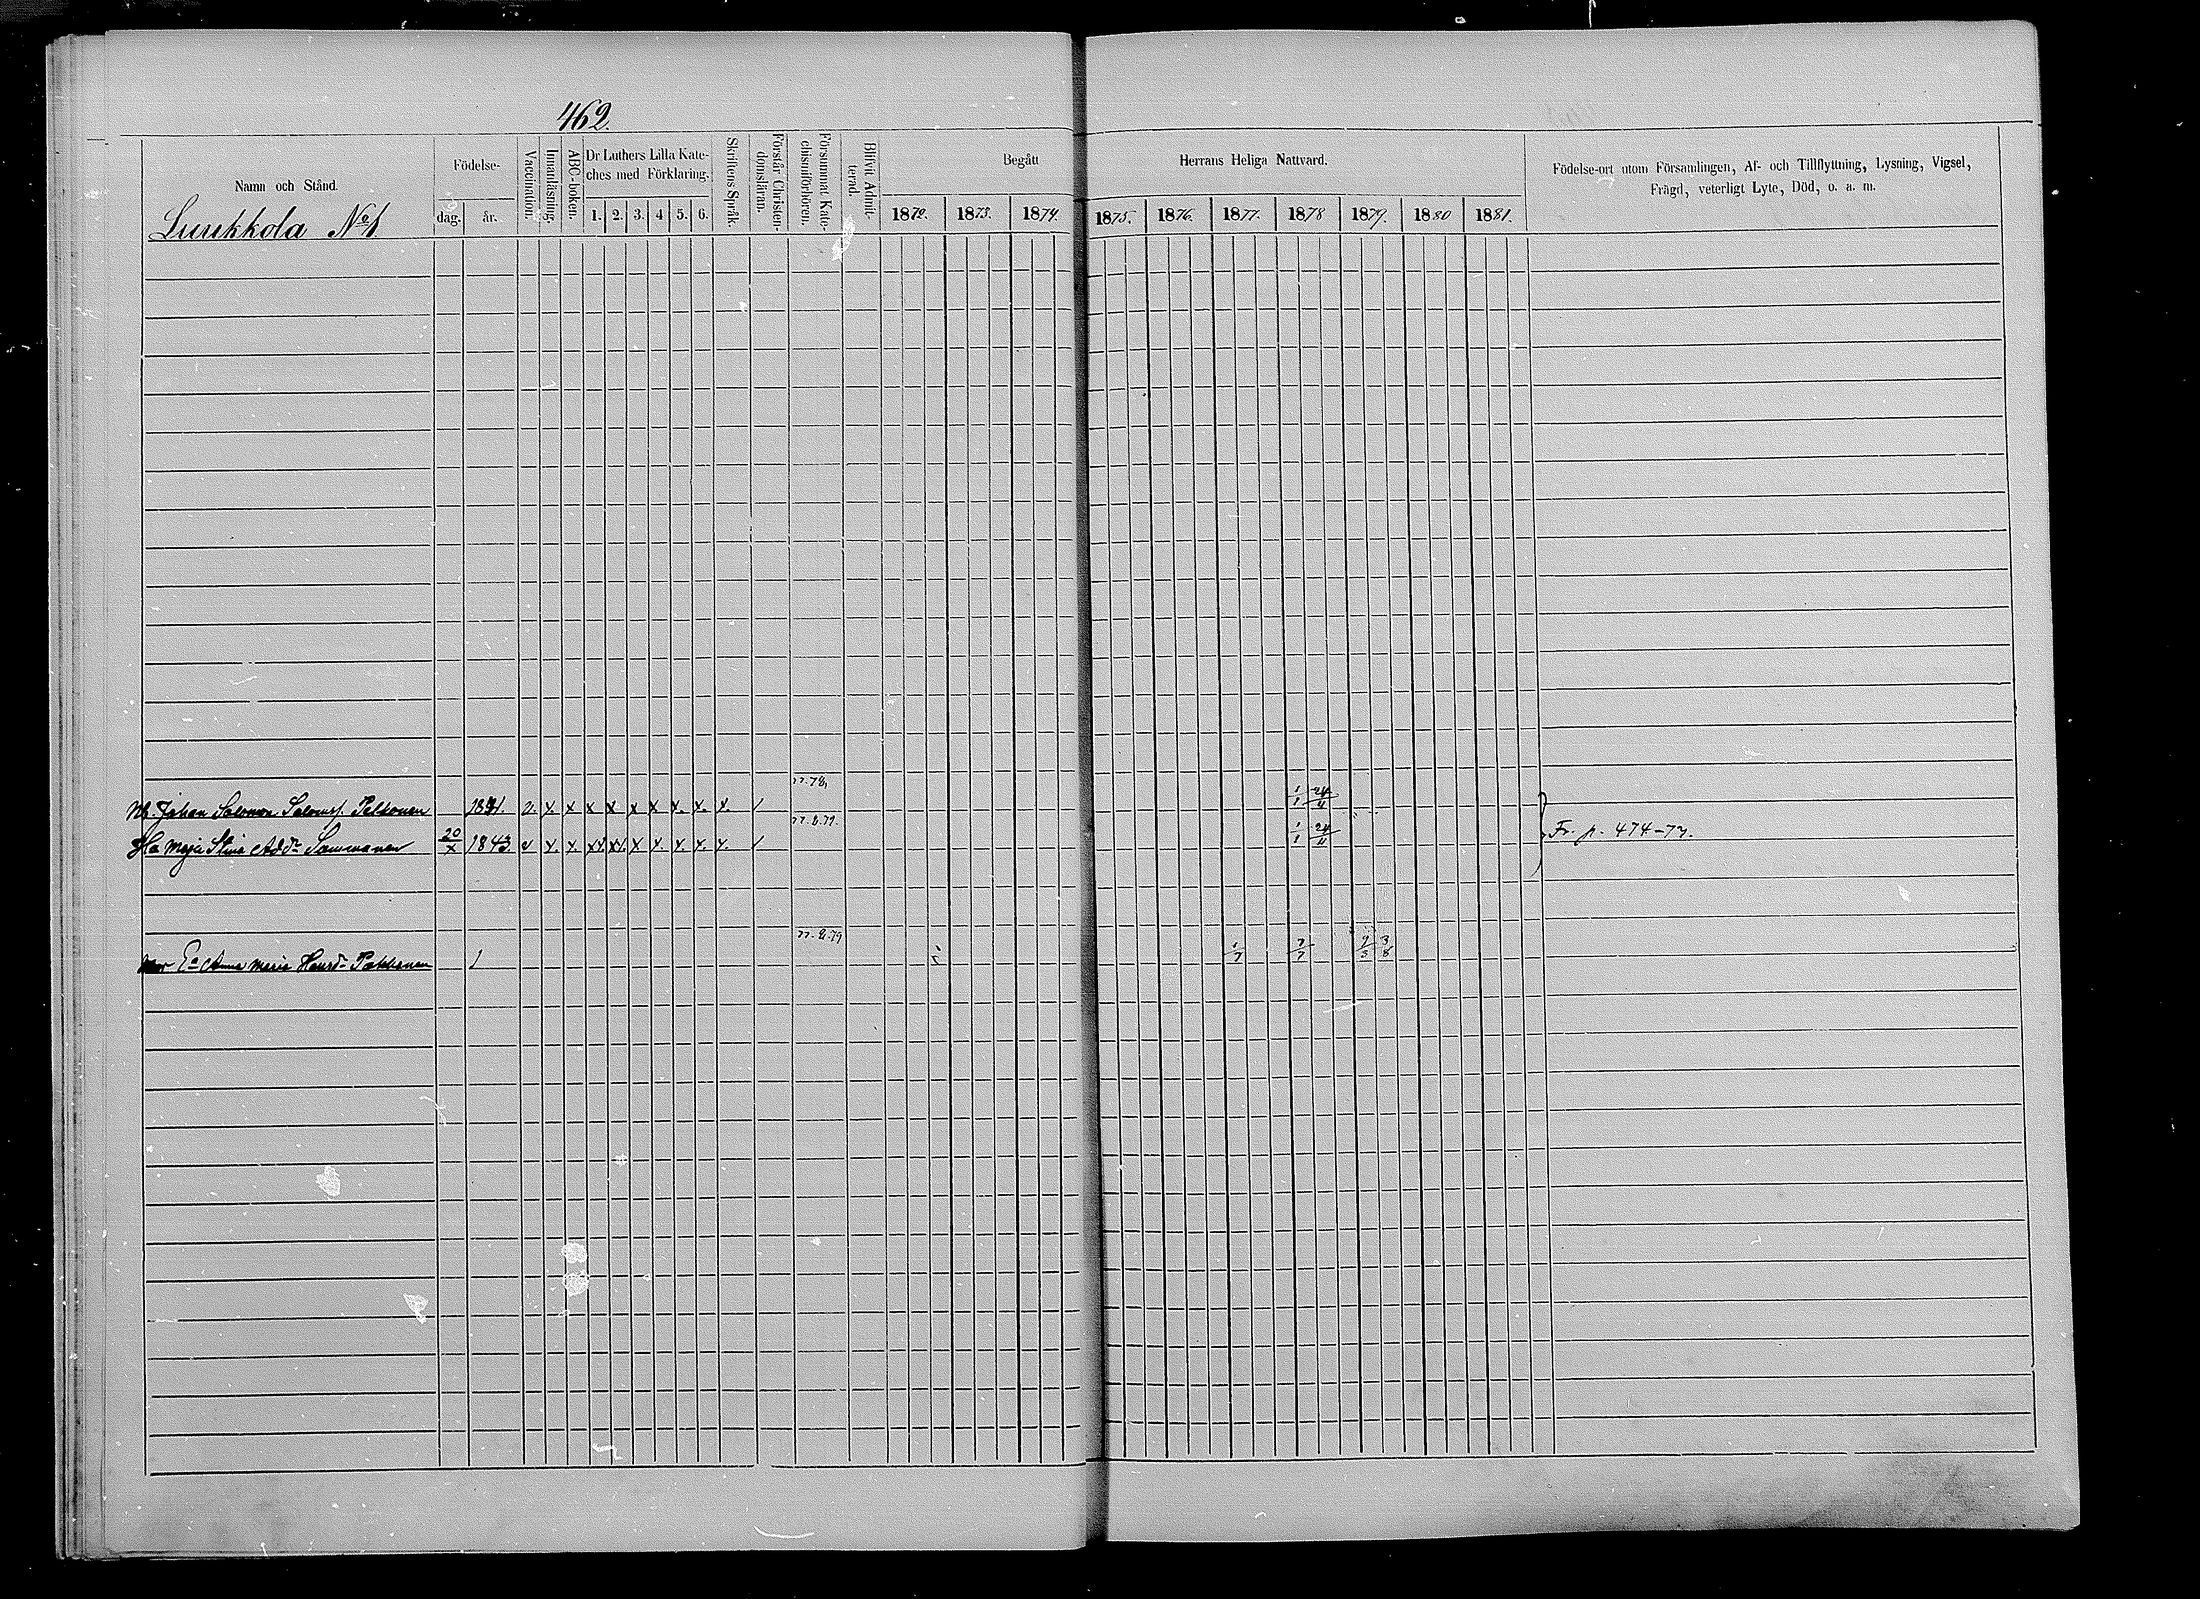 462.
Namn och Stånd.
Luukkola No 1
Födelse-
dag. år.
Vaccination.
Innanläsning.
ABC-boken.
Dr Luthers Lilla Kate-
ches med Förklaring.
1. 2. 3. 4 5. 6.
Skriftens Språk.
Förstår Christen-
domsläran.
Försummat Kate-
chismiförhören.
Blifvit Admit-
terad.
Begått Herrans Heliga Nattvard.
1872. 1873. 1874. 1875. 1876. 1877. 1878 1879. 1880 1881.
Födelse-ort utom Församlingen, Af- och Tillflyttning, Lysning, Vigsel,
Frägd, veterligt Lyte, Död, o. a. m.
77.78,
Johan Salomon Salomsf. Pelkonen x x x x x x x. x. x. 1/1 24/11
77.8.79.
Hu Maja Stina Add:r Sammanen 20/X 1843. v x. x. x x. x. x. x. 1/1 24/11 Fr. p. 474-77.
77.8.79
Ea Anna Maria 1/7 7/7 3/8